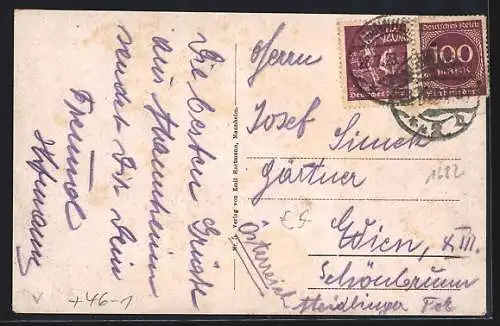 Die besten Grüße
aus Mannheim
sendet Dir Dein
Freund
Hofmann
Verlag von Emil Hartmann, Mannheim.
Herrn
Josef Simek
Gärtner
Wien, XIII.
Schönbrunn
Meidlinger
Österreich
Deutsches Reich
100
Deutsches Reich
1682
+46-1